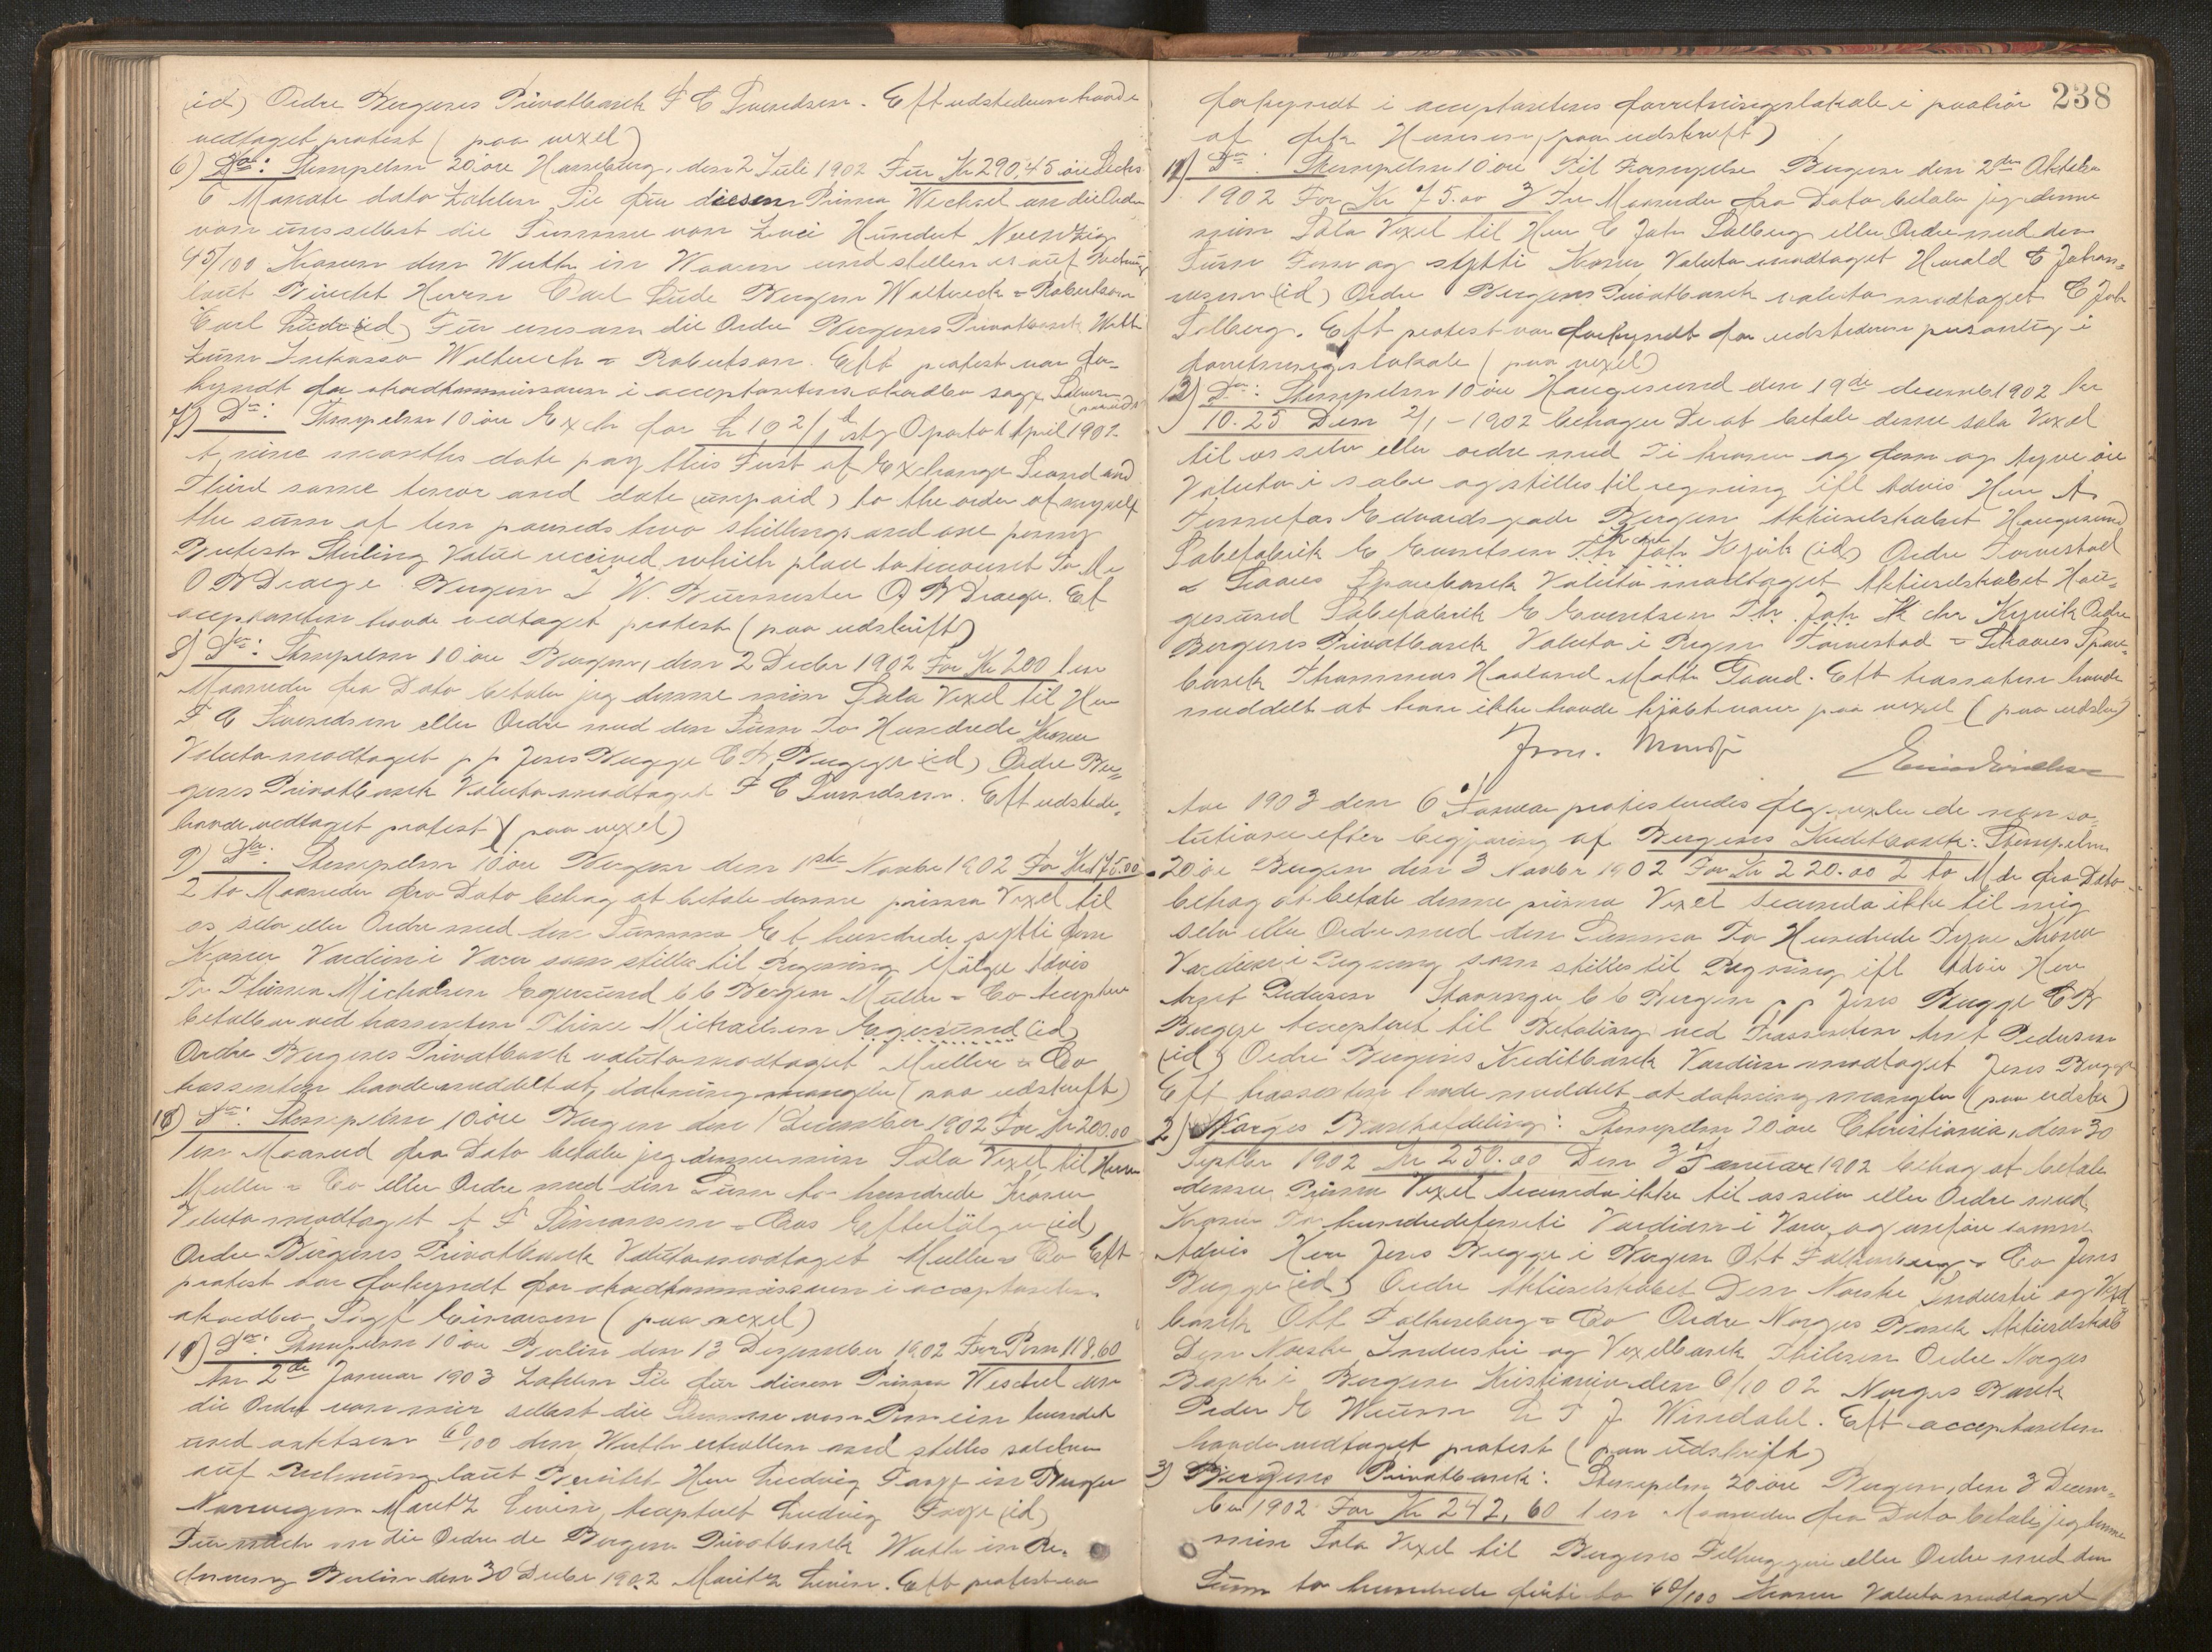 id) Ordre Bergens Privatbank F C Svendsen. Eft udstederen havde
vedtaget protest (paa vexel)
6) Do: Stempelm 20 öre Hamburg, den 2 Juli 1902 Für Kr 290,45 öre Sechs
6 Monate dato zahlen Sie für diesen Prima Wechsel an die Ordre
von uns selbst die Summe von Zwei Hundert Neuntzig
45/100 Kronen den Werth in Waaren und stellen es auf Rechnung
laut Bericht Herrn Carl Lude Bergen Walbrech & Robertson
Carl Lude (id) Für uns an die Ordre Bergens Privatbank Werth
zum Inkasso Walbrech & Robertson. Eft protest var for-
kyndt for akordkommissæren i acceptantens akordbo sagf
7) Do: Stempelm 10 öre Exch for £ 10 2/1 stg Oporto 1 April 1902
At nine months date pay this First of Exchange Second and
Third same tenor and date (unpaid) to the order of myself
the sum of ten pounds two shillings and one penny
British Sterling Value received, which place to account To Mr
O B Draege. Bergen J. W. Burmester O B Draege. Eft
acceptanten havde vedtaget protest (paa udskrift)
8) Do: Stempelm 10 öre Bergen, den 2 Decbr 1902 For Kr 200 1 en
Maaneder fra Dato betaler jeg denne min Sola Vexel til Herr
F C Svendsen eller Ordre med den Sum To Hundrede Kroner
Valuta modtaget p p Jens Bugge C B Bugge (id) Ordre Ber-
gens Privatbank Valuta modtaget F C Svendsen. Eft udsteder
havde vedtaget protest (paa vexel)
9) Do: Stempelm 10 öre Bergen den 1ste Novbr 1902 For Kr 175.00
2 to Maaneder fra Dato behag at betale denne prima Vexel til
os selv eller Ordre med den Summa Et hundrede sytti fem
Kroner Værdien i Varer som stilles til Regning ifölge Advis
Michalsen Egersund Bergen Müller & Co Accepteret
betalbar ved trassenten Michaelsen Egersund (id)
Ordre Bergens Privatbank valuta modtaget Müller & Co
trassenten havde meddelt at dækning mangler (paa udskrift)
10) Do: Stempelm 10 öre Bergen den 1 December 1902 For Kr 200.00
1 en Maaned fra Dato betaler jeg denne min Sola Vexel til Herrer
Müller & Co eller Ordre med den Sum to hundrede Kroner
Valuta modtaget A F Simonsen & Cos Efterfölger (id)
Ordre Bergens Privatbank Valuta modtaget Müller & Co Eft
protest var forkyndt for akordkommissæren i acceptantens
akordbo Sagf Einarsen (paa vexel)
11) Do: Stempelm 10 öre Berlin den 13 Dezember 1902 For Rm 118.60
Am 2te Januar 1903 zahlen Sie für diesen Prima Wechsel an
die Ordre von mir selbst die Summe von Rm ein hundert
und achtzen 60/100 den Werth erhalten und stelles solchen
auf Rechnung laut Bericht Herr Ludvig in Bergen
Norwegen Moritz Levin, Acceptert Ludvig (id)
Für mich an die Ordre de Bergens Privatbank Werth in Re-
chnung Berlin den 30 Decbr 1902 Moritz Levin. Eft protest var
238
forkyndt i acceptantens forretningslokale i paahör
af frk Hansen (paa udskrift)
12) Do: Stempelm 10 öre Til Bergen den 2den Oktober
1902 For Kr 75.00 3 Tre Maaneder fra Dato betaler jeg denne
min Sola Vexel til Herr C Joh Solberg eller Ordre med den
Sum Fem og sytti Kroner Valuta modtaget Harald C Johan-
nesen (id) Ordre Bergens Privatbank valuta modtaget C Joh
Solberg. Eft protest var forkyndt for udstederen personlig i
forretningslokale (paa vexel)
13) Do: Stempelm 10 öre Haugesund den 19de december 1902 Kr
10.25 Den 2/1 - 1902 behager De at betale denne sola Vexel
til os selv eller ordre med Ti kroner og fem og tyve öre
Valuta i sæbe og stilles til regning ifl Advis Herr A
Edvardsgade Bergen Aktieselskabet Haugesund
Sæbefabrik E Evertsen Th Joh Kyvik (id) Ordre Torvestad
& Skaares Sparebank Valuta modtaget Aktieselskabet Hau-
gesund Sæbefabrik E Evertsen Th. Joh Kyvik Ordre
Bergens Privatbank Valuta i Regn Torvestad & Skaares Spare-
bank Thommas Haaland Math Gaard. Eft trassaten havde
meddelt at han ikke havde kjöbt varer paa vexel (paa udskr)
Aar 1903 den 6 Januar protesteredes flg vexler de non so-
lutione efter begjæring af Bergens Kreditbank: Stempelm
20 öre Bergen den 3 Novbr 1902 For Kr 220.00 2 to Mdr fra Dato
behag at betale denne prima Vexel secunda ikke til mig
selv eller Ordre med den Summa To Hundrede Tyve Kroner
Værdien i Regning som stilles til Regning ifl Advis Herr
Arnt Pedersen Stavanger Bergen p p Jens Bugge C B
Bugge Accepteret til Betaling ved Trassenten Arnt Pedersen
(id) Ordre Bergens Kreditbank Værdien modtaget Jens Bugge
Eft trassenten havde meddelt at dækning mangler (paa udskr)
2) Norges Bankafdeling: Stempelm 20 öre Christiania, den 30
Septbr 1902 Kr 250.00 Den 3 Januar 1902 behag at betale
denne Prima Vexel Secunda ikke til os selv eller Ordre med
Kroner To hundredefemti Værdien i Varer og anföre samme
Advis Herr Jens Bugge i Bergen Ott Falkenberg & Co Jens
Bugge (id) Ordre Aktieselskabet Den Norske Industri og Vexel
bank Ott Falkenberg & Co Ordre Norges Bank Aktieselskab
Den Norske Industri og Vexelbank Ordre Norges
Bank i Bergen Kristiania den 6/10 02 Norges Bank
Peder E Windahl. Eft acceptanten
havde vedtaget protest (paa udskrift)
3) Bergens Privatbank: Stempelm 20 öre Bergen, den 3 Decem-
ber 1902 For Kr 242,60 1 en Maaneder fra Dato betaler jeg denne
min Sola Vexel til Bergens eller Ordre med den
Sum to hundrede firti to 60/100 Kroner Valuta modtaget